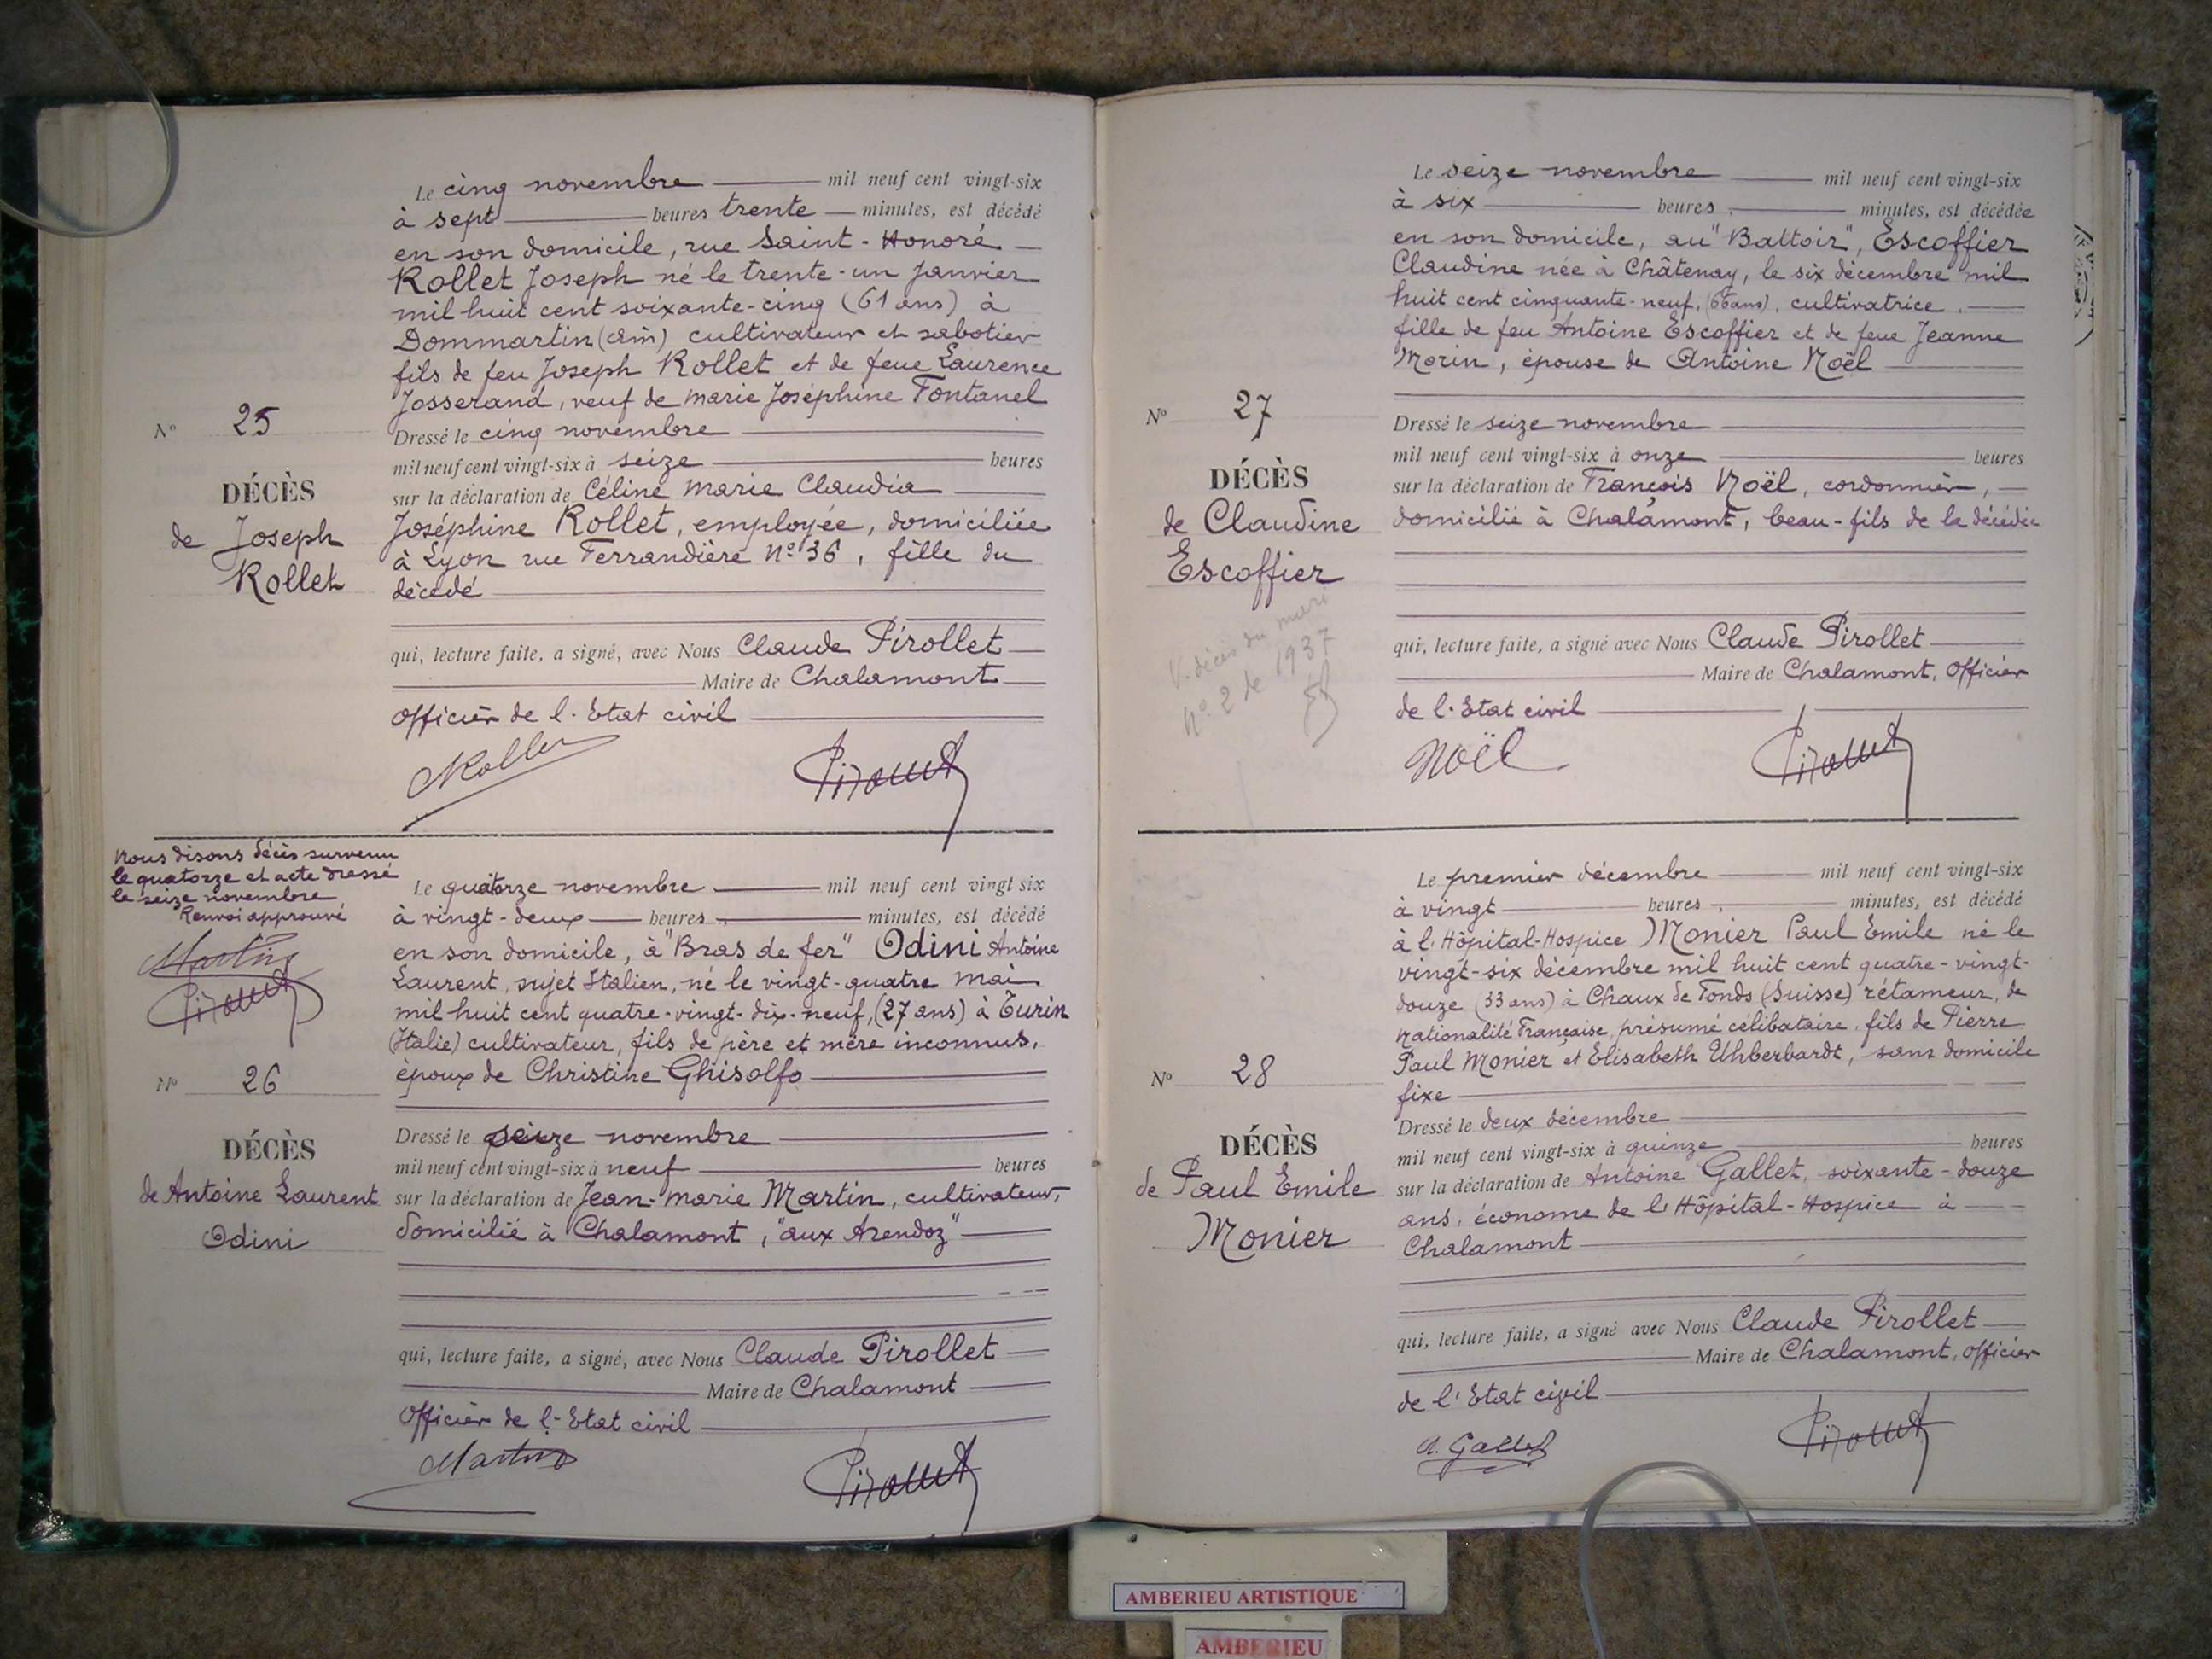 Le cinq novembre mil neuf cent vingt-six
à sept heures trente minutes, est décédé
en son domicile, rue Saint-Honoré
Rollet Joseph né le trente-un janvier
mil huit cent soixante-cinq (61 ans) à
Dommartin (Ain) cultivateur et sabotier
fils de feu Joseph Rollet et de feue Laurence
Josserand, veuf de Marie Joséphine Fontanel
Nº 25
Dressé le cinq novembre
mil neuf cent vingt-six à seize heures
DÉCÈS
de Joseph
Rollet
sur la déclaration de Céline Marie Claudia
Joséphine Rollet, employée, domiciliée
à Lyon rue Ferrandière Nº 36, fille du
décédé
qui, lecture faite, a signé, avec Nous Claude Pirollet
Maire de Chalamont
Officier de l'Etat civil
Pirollet
Nous disons décès survenu
le quatorze et acte dressé
le seize novembre
Renvoi approuvé
Martin
Pirollet
Le quatorze novembre mil neuf cent vingt six
à vingt-deux heures minutes, est décédé
en son domicile, à "Bras de fer" Odini Antoine
Laurent, sujet Italien, né le vingt-quatre mai
mil huit cent quatre-vingt-dix-neuf, (27 ans) à Turin
(Italie) cultivateur, fils de père et mère inconnus,
époux de Christine Ghisolfo
Nº 26
DÉCÈS
de Antoine Laurent
Odini
Dressé le seize novembre
mil neuf cent vingt-six à neuf heures
sur la déclaration de Jean-Marie Martin, cultivateur,
domicilié à Chalamont, "aux Arendoz"
qui, lecture faite, a signé, avec Nous Claude Pirollet
Maire de Chalamont
Officier de l'Etat civil
Martin
Pirollet
Le seize novembre mil neuf cent vingt-six
à six heures minutes, est décédée
en son domicile, au "Battoir", Escoffier
Claudine née à Châtenay, le six décembre mil
huit cent cinquante-neuf, (66 ans), cultivatrice,
fille de feu Antoine Escoffier et de feue Jeanne
Morin, épouse de Antoine Noël
Nº 27
DÉCÈS
de Claudine
Escoffier
V. décès du mari
nº 2 de 1937
Dressé le seize novembre
mil neuf cent vingt-six à onze heures
sur la déclaration de François Noël, cordonnier,
domicilié à Chalamont, beau-fils de la décédée
qui, lecture faite, a signé avec Nous Claude Pirollet
Maire de Chalamont, Officier
de l'Etat civil
Noël
Pirollet
Le premier décembre mil neuf cent vingt-six
à vingt heures minutes, est décédé
à l'Hôpital-Hospice Monier Paul Emile né le
vingt-six décembre mil huit cent quatre-vingt-
douze (33 ans) à Chaux de Fonds (Suisse) rétameur, de
nationalité Française, présumé célibataire, fils de Pierre
Paul Monier et Elisabeth Uhberbardt, sans domicile
fixe
Nº 28
DÉCÈS
de Paul Emile
Monier
Dressé le deux décembre
mil neuf cent vingt-six à quinze heures
sur la déclaration de Antoine Gallet, soixante-douze
ans, économe de l'Hôpital-Hospice à
Chalamont
qui, lecture faite, a signé avec Nous Claude Pirollet
Maire de Chalamont, Officier
de l'Etat civil
A. Gallet
Pirollet
AMBERIEU ARTISTIQUE
AMBERIEU